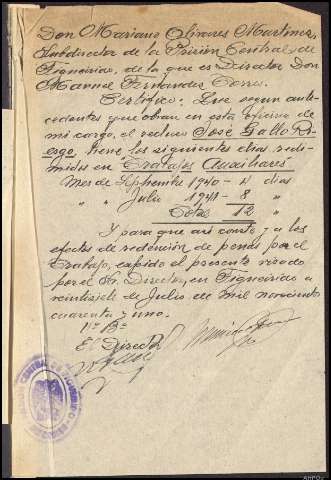 Don Mariano Olivares Martinez,
Subdirector de la Prisión Central de
Figueirido, de la que es Director Don
Manuel Fernandez
Certifico: Que segun ante-
cedentes que obran en esta oficina de
mi cargo, el recluso José Gallo
tiene los siguientes dias redi-
midos en "Trabajos Auxiliares"
Mes de Septiembre 1940 - 4 dias
" " Julio 1941 - 8 "
Total 12 "
Y para que asi conste y a los
efectos de redención de penas por el
Trabajo, expido el presente visado
por el Sr. Director, en Figueirido a
veintisiete de Julio de mil novecientos
cuarenta y uno.
Vº Bº
El Director